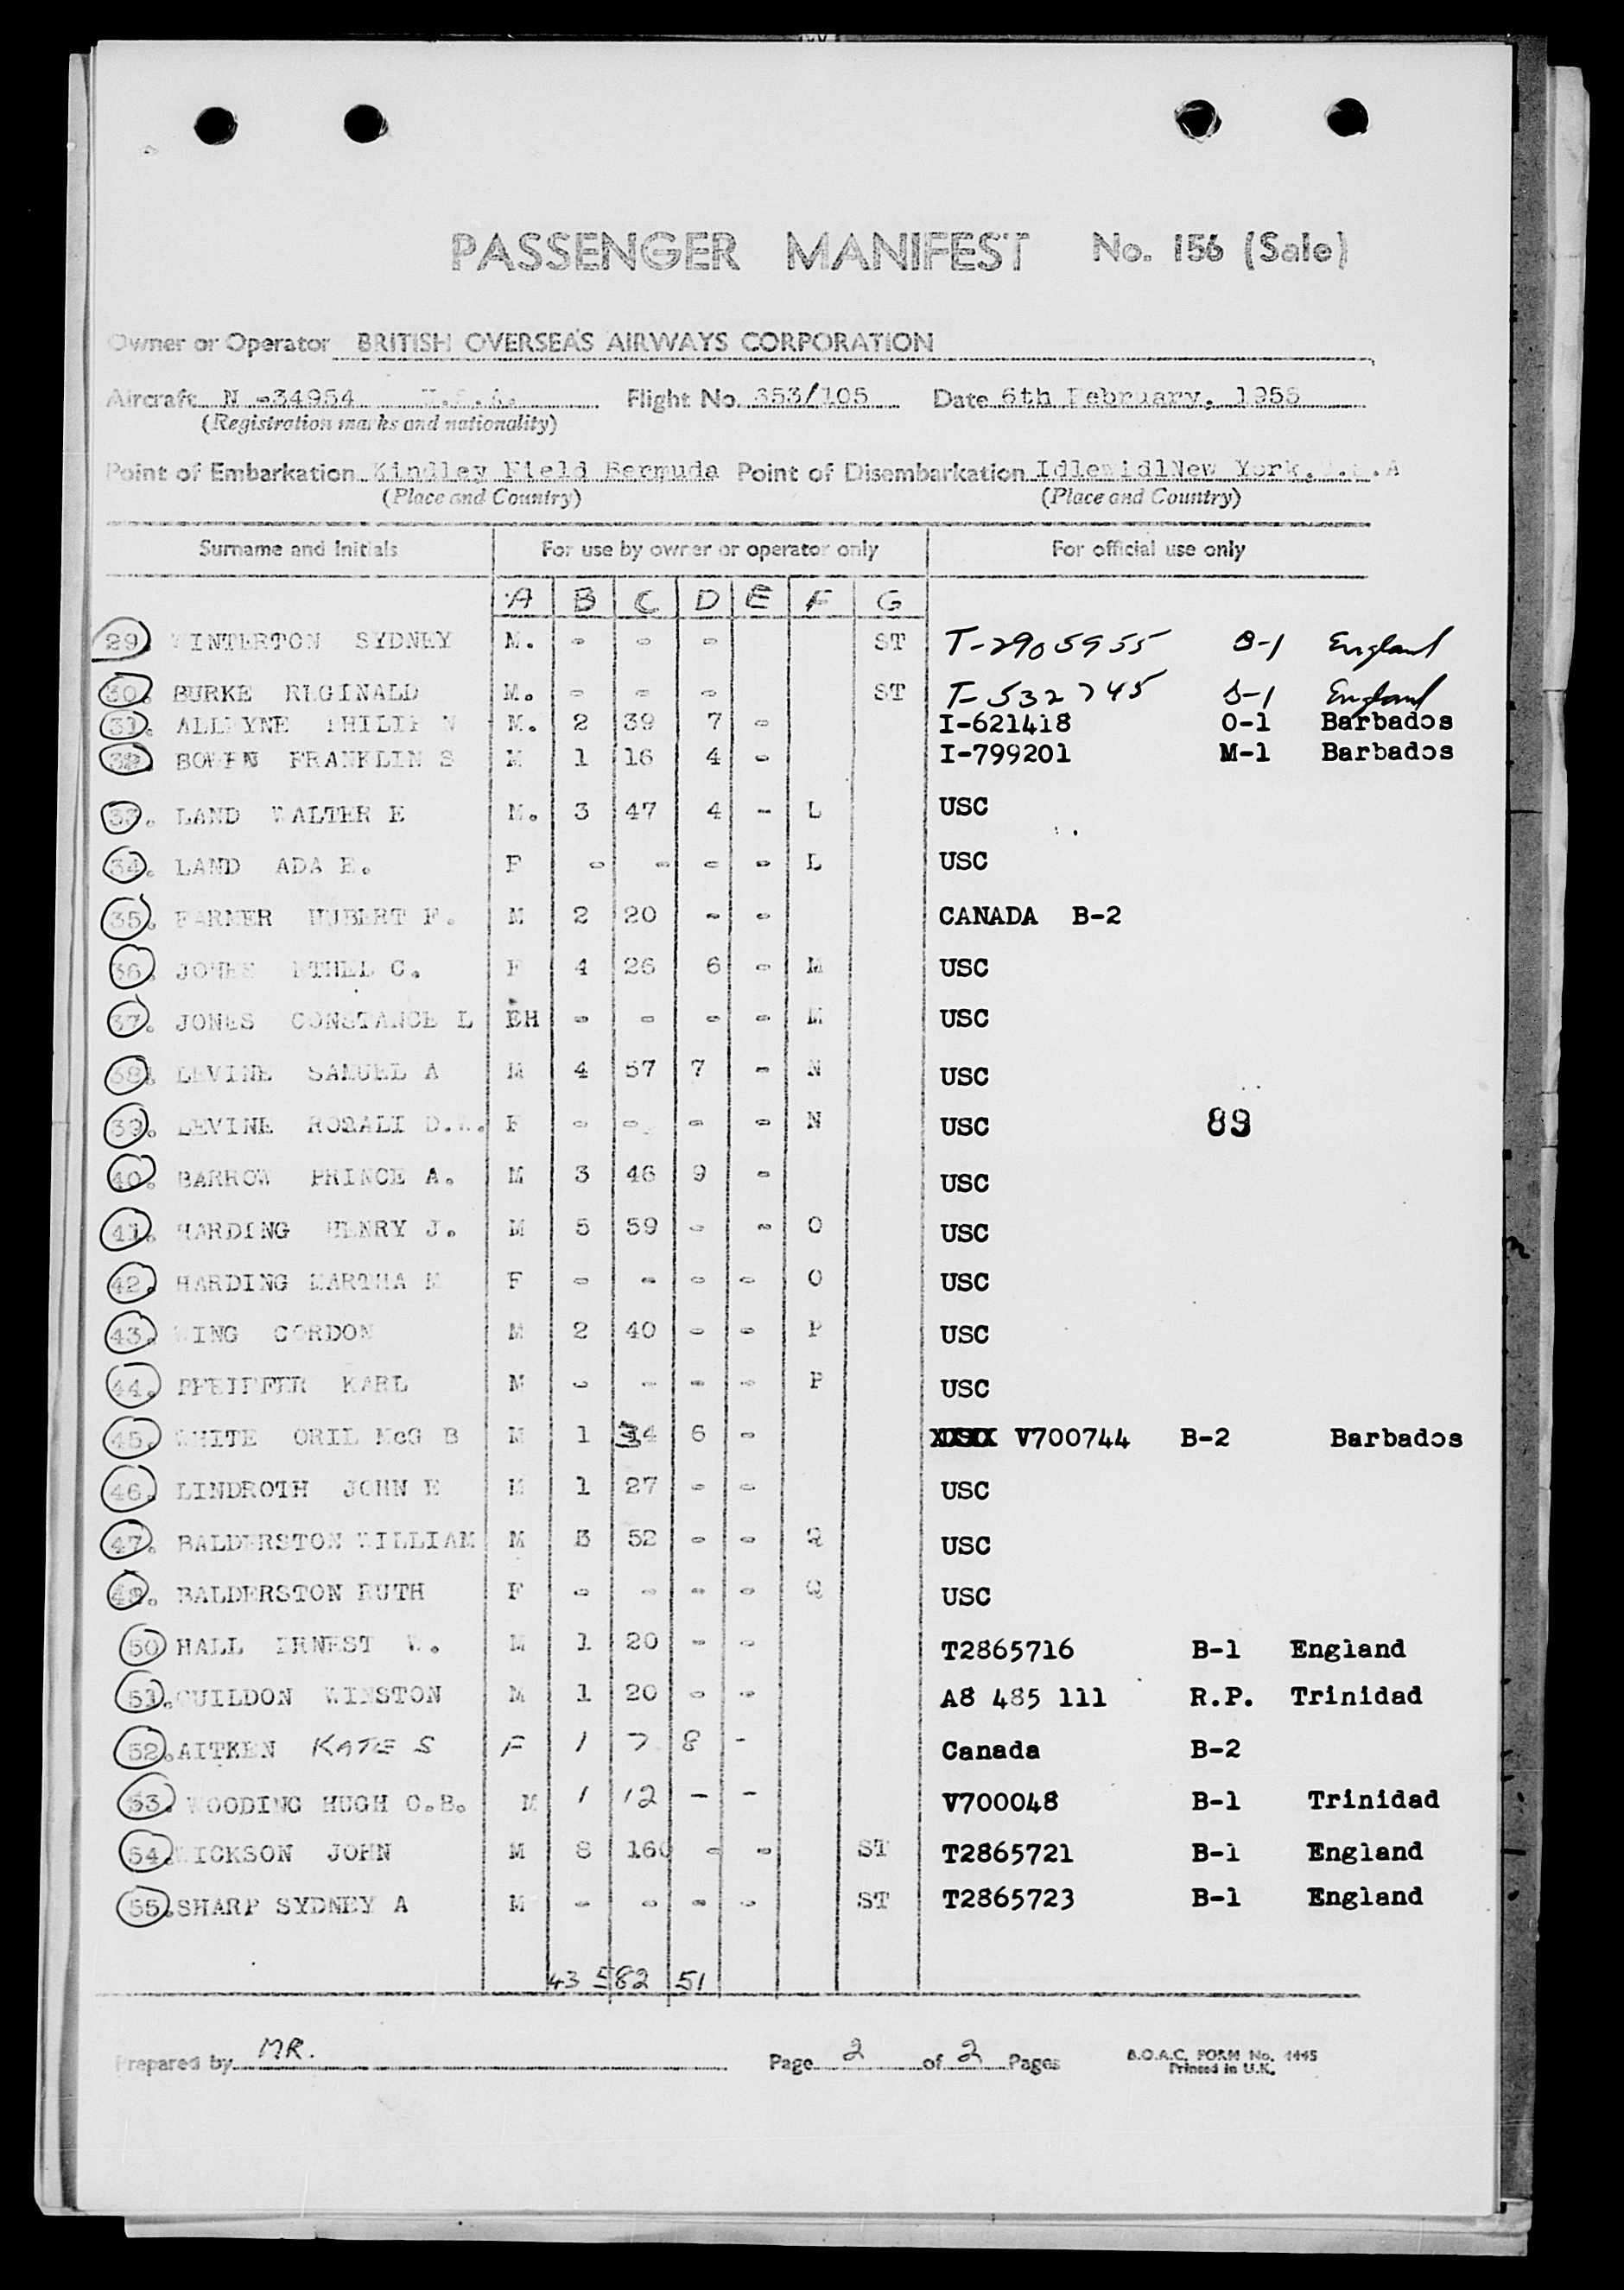 PASSENGER MANIFEST No. 156 (Sale)
Owner or Operator BRITISH OVERSEAS AIRWAYS CORPORATION
Aircraft N -34954 U.S.A. Flight No. 353/105 Date 6th February, 1955
(Registration marks and nationality)
Point of Embarkation Kindley Field Bermuda Point of Disembarkation IdlewildNew York.U.S.A
(Place and Country) (Place and Country)
Surname and Initials For use by owner or operator only For official use only
A B C D E F G
29. WINTERTON SYDNEY M. - - - ST T-2905955 B-1 England
30. BURKE REGINALD M. - - - ST T-532745 B-1 England
31. ALLEYNE PHILIP N M. 2 39 7 - I-621418 O-1 Barbados
32. BOWEN FRANKLIN S M 1 16 4 - I-799201 M-1 Barbados
33. LAND WALTER E M. 3 47 4 - L USC
34. LAND ADA E. F - - - - L USC
35. FARMER HUBERT F. M 2 20 - - CANADA B-2
36. JONES ETHEL C. F 4 26 6 - M USC
37. JONES CONSTANCE L CH - - - - M USC
38. LEVINE SAMUEL A M 4 57 7 - N USC
39. LEVINE ROSALI D.W. F - - - - N USC 89
40. BARROW PRINCE A. M 3 46 9 - USC
41. HARDING HENRY J. M 5 59 - - O USC
42. HARDING MARTHA M F - - - - O USC
43. WING GORDON M 2 40 - - P USC
44. PFEIFFER KARL M - - - - P USC
45. WHITE ORIL McG B M 1 34 6 - V700744 B-2 Barbados
46. LINDROTH JOHN E M 1 27 - - USC
47. BALDERSTON WILLIAM M 3 52 - - Q USC
48. BALDERSTON RUTH F - - - - Q USC
50 HALL ERNEST W. M 1 20 - - T2865716 B-1 England
51. GUILDON WINSTON M 1 20 - - A8 485 111 R.P. Trinidad
52. AITKEN KATE S F 1 7 8 - Canada B-2
53. WOODING HUGH O.B. M 1 12 - - V700048 B-1 Trinidad
54. DICKSON JOHN M 8 160 - - ST T2865721 B-1 England
55. SHARP SYDNEY A M - - - - ST T2865723 B-1 England
43 582 51
Prepared by MR. Page 2 of 2 Pages B.O.A.C. FORM No. 4445
Printed in U.K.